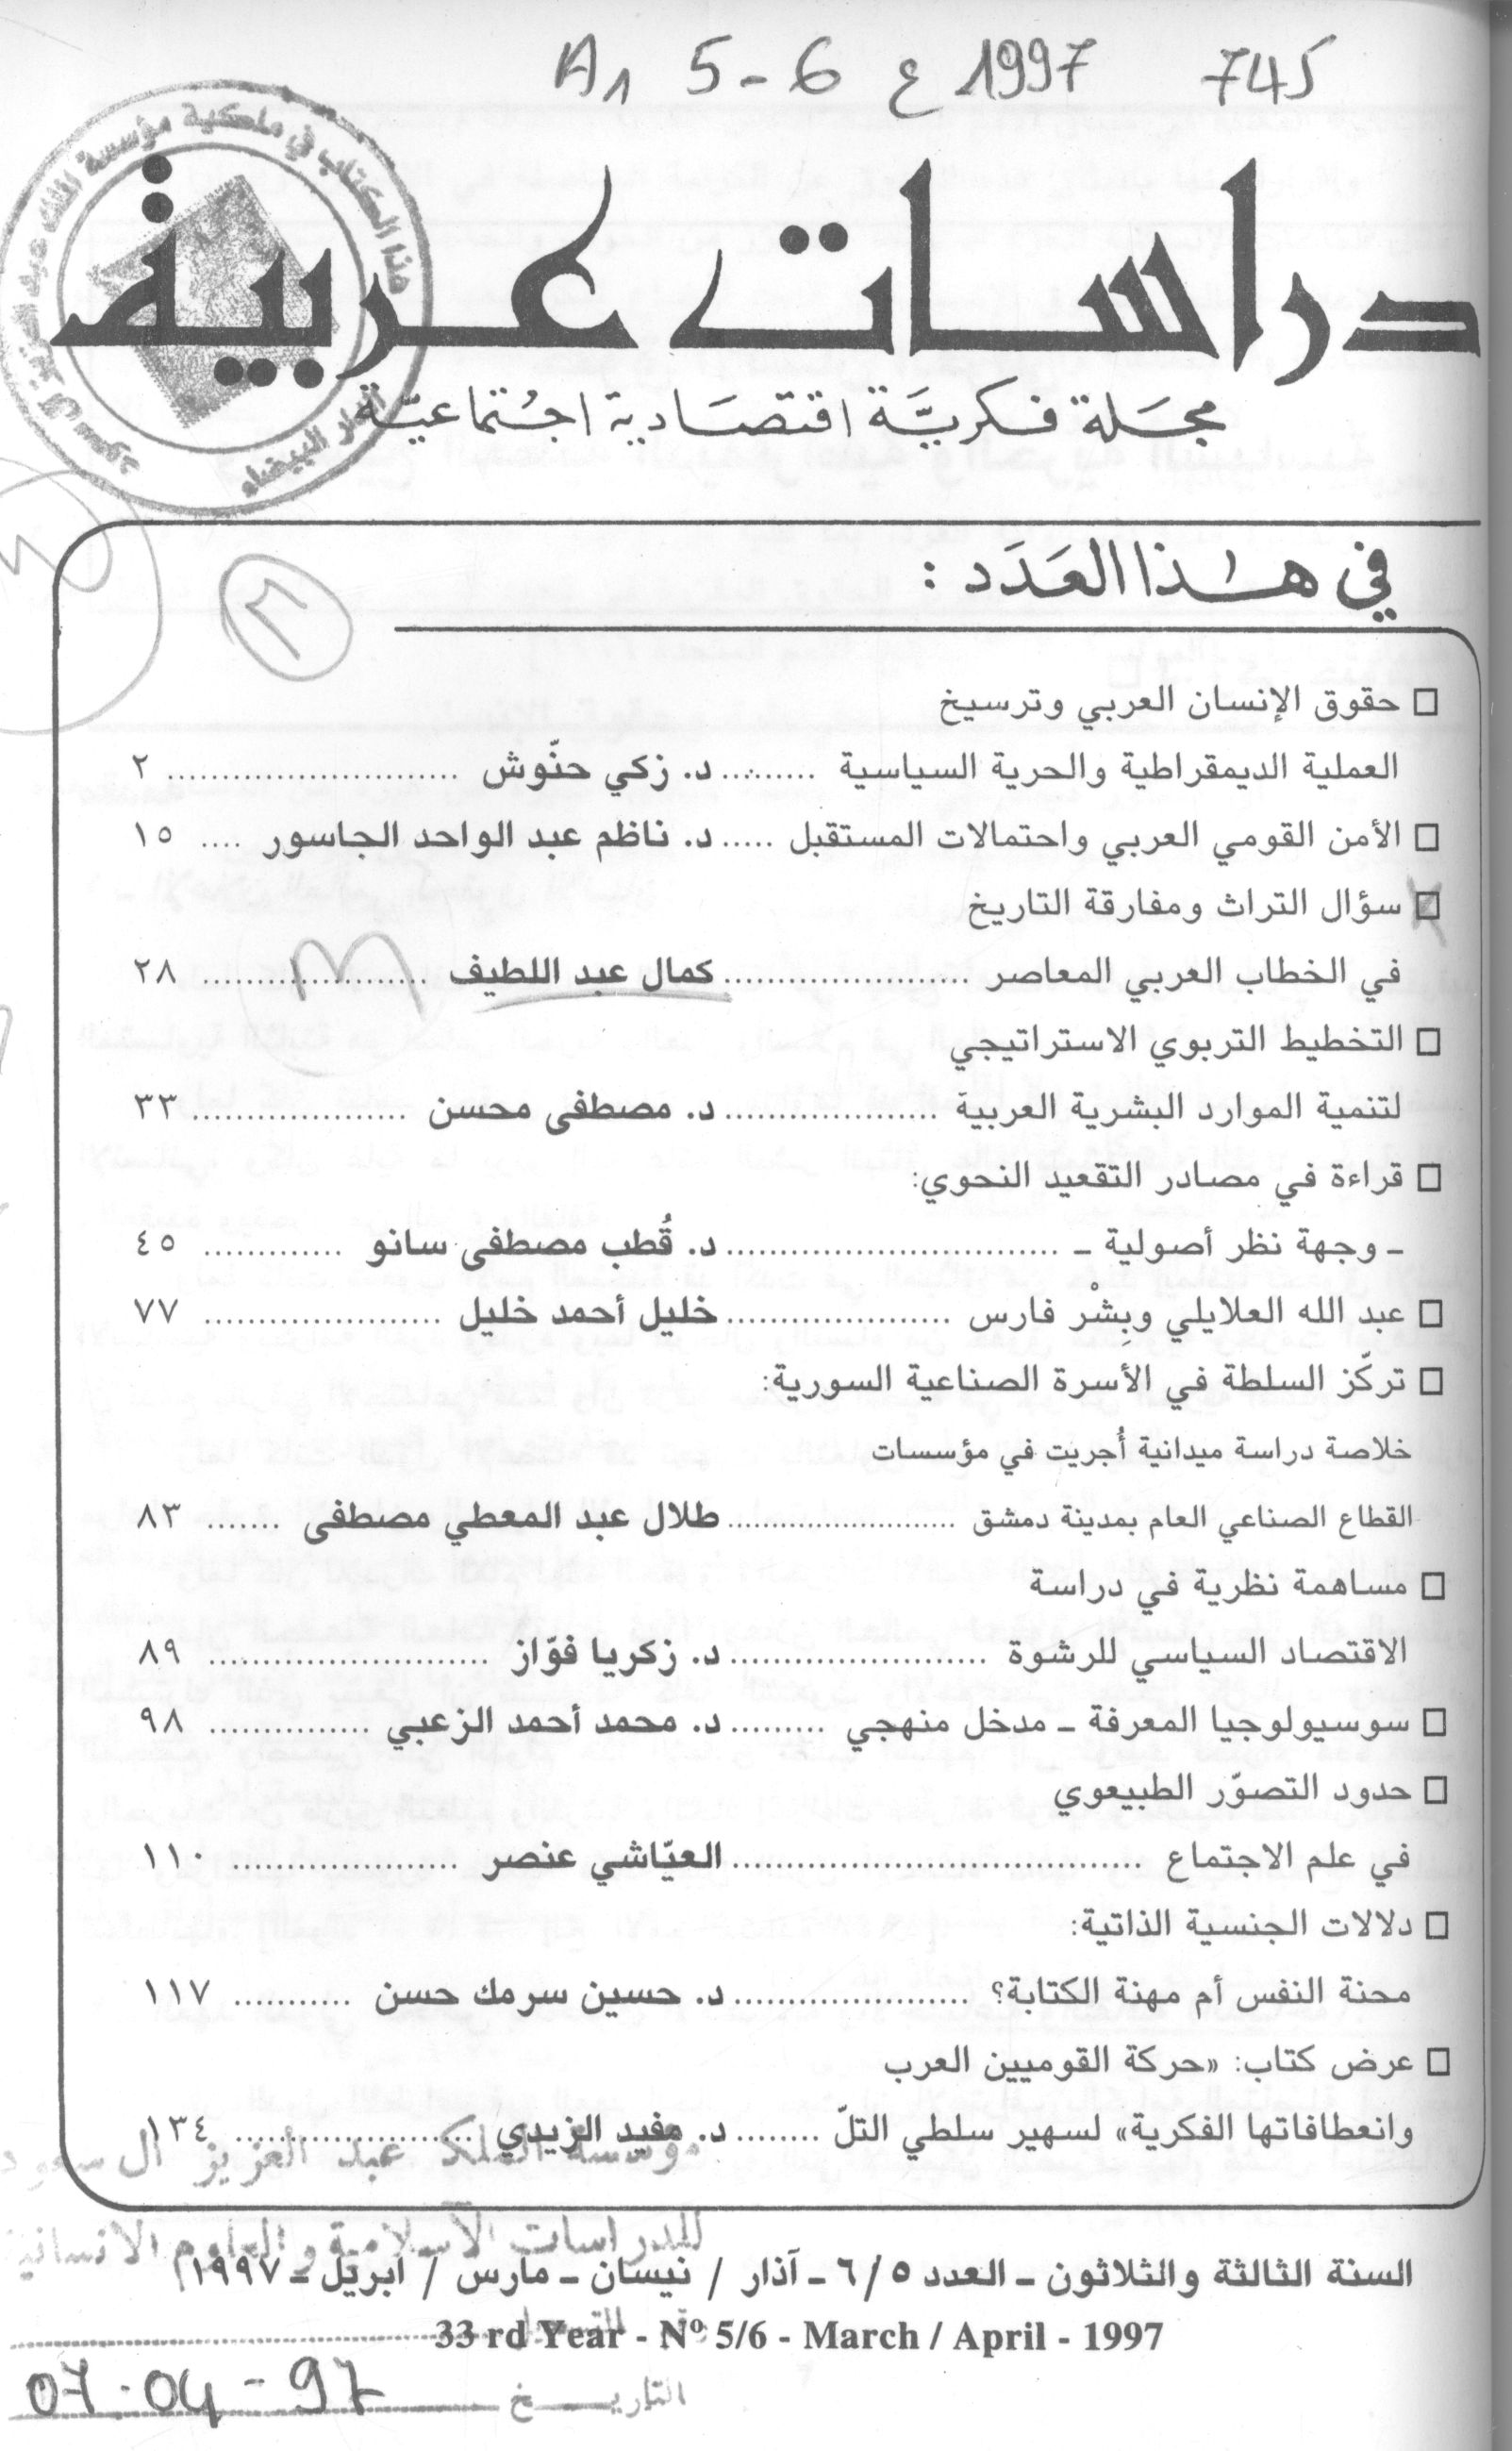 A1 5-6 ع 1997 745
هذا الكتاب في ملكية مؤسسة الملك عبد العزيز آل سعود
الدار البيضاء
دراسات عربية
مجلة فكريّة اقتصادية اجتماعيّة
في هذا العَدَد :
□ حقوق الإنسان العربي وترسيخ
العملية الديمقراطية والحرية السياسية ......... د. زكي حنّوش .......................... ٢
□ الأمن القومي العربي واحتمالات المستقبل ..... د. ناظم عبد الواحد الجاسور .... ١٥
□ سؤال التراث ومفارقة التاريخ
في الخطاب العربي المعاصر ....................... كمال عبد اللطيف ..................... ٢٨
□ التخطيط التربوي الاستراتيجي
لتنمية الموارد البشرية العربية .................... د. مصطفى محسن .................... ٣٣
□ قراءة في مصادر التقعيد النحوي:
ـ وجهة نظر أصولية ـ ............................... د. قُطب مصطفى سانو ............. ٤٥
□ عبد الله العلايلي وبِشْر فارس ..................... خليل أحمد خليل ...................... ٧٧
□ تركّز السلطة في الأسرة الصناعية السورية:
خلاصة دراسة ميدانية أُجريت في مؤسسات
القطاع الصناعي العام بمدينة دمشق ......................... طلال عبد المعطي مصطفى ....... ٨٣
□ مساهمة نظرية في دراسة
الاقتصاد السياسي للرشوة ........................ د. زكريا فوّاز .......................... ٨٩
□ سوسيولوجيا المعرفة ـ مدخل منهجي ......... د. محمد أحمد الزعبي ............... ٩٨
□ حدود التصوّر الطبيعوي
في علم الاجتماع ...................................... العيّاشي عنصر ..................... ١١٠
□ دلالات الجنسية الذاتية:
محنة النفس أم مهنة الكتابة؟ ...................... د. حسين سرمك حسن ........... ١١٧
□ عرض كتاب: «حركة القوميين العرب
وانعطافاتها الفكرية» لسهير سلطي التلّ ........ د. مفيد الزيدي ...................... ١٣٤
مؤسسة الملك عبد العزيز آل سعود
للدراسات الاسلامية والعلوم الانسانية
السنة الثالثة والثلاثون ـ العدد ٦/٥ ـ آذار / نيسان ـ مارس / ابريل ـ ١٩٩٧
33 rd Year - Nº 5/6 - March / April - 1997
التاريخ 07-04-97